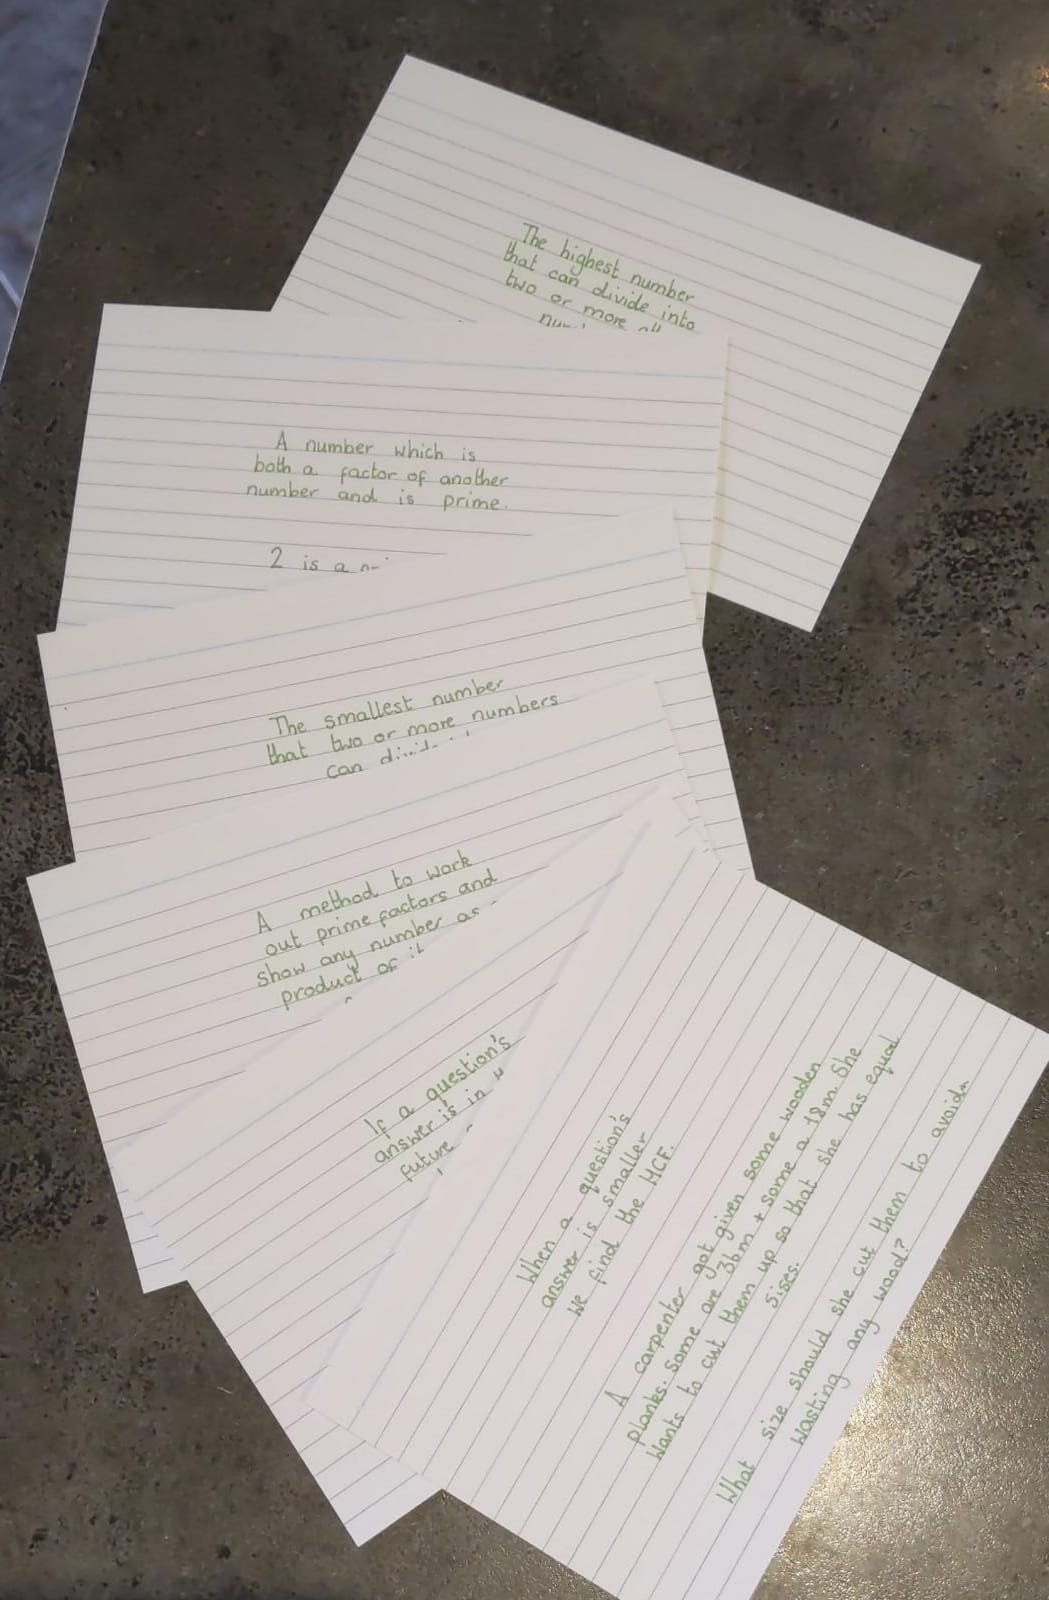 The highest number
that can divide into
two or more
A number which is
both a factor of another
number and is prime.
2 is a
The smallest number
that two or more numbers
can
A method to work
out prime factors and
show any number as
product of
If a question's
answer is in
future
When a question's
answer is smaller
we find the HCF.
A carpenter got given some wooden
planks. Some are 36m + some a 18m. She
wants to cut them up so that she has equal
sises.
What size should she cut them to avoid
wasting any wood?